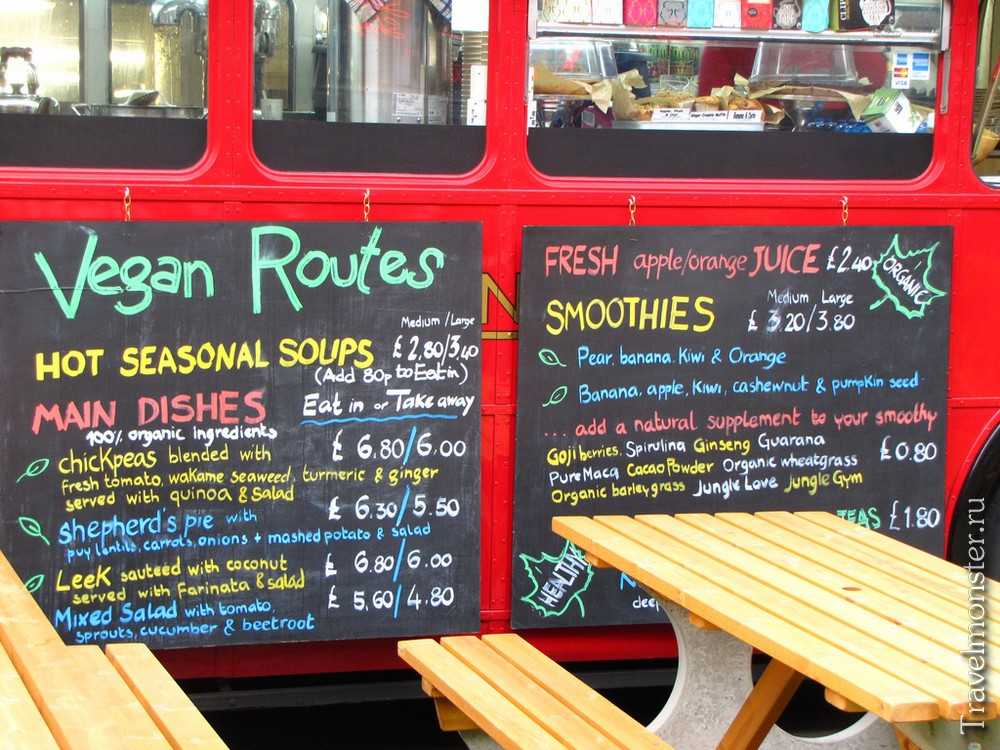 Vegan Routes
Medium / Large
HOT SEASONAL SOUPS £ 2.80/3.40
(Add 80p to Eat in)
MAIN DISHES Eat in or Take away
100% organic ingredients
chickpeas blended with £ 6.80/6.00
fresh tomato, wakame seaweed, turmeric & ginger
served with quinoa & salad
shepherd's pie with £ 6.30/5.50
puy lentils, carrots, onions + mashed potato & salad
Leek sauteed with coconut £ 6.80/6.00
served with Farinata & salad
Mixed Salad with tomato, £ 5.60/4.80
sprouts, cucumber & beetroot
N
FRESH apple/orange JUICE £2.40
ORGANIC
Medium Large
SMOOTHIES £ 3.20/3.80
Pear, banana, Kiwi & Orange
Banana, apple, Kiwi, cashewnut & pumpkin seed.
... add a natural supplement to your smoothy
Goji berries, Spirulina Ginseng Guarana £0.80
Pure Maca Cacao Powder Organic wheatgrass
Organic barleygrass Jungle Love Jungle Gym
TEAS £1.80
HEALTHY
N
deep
Travelmonster.ru